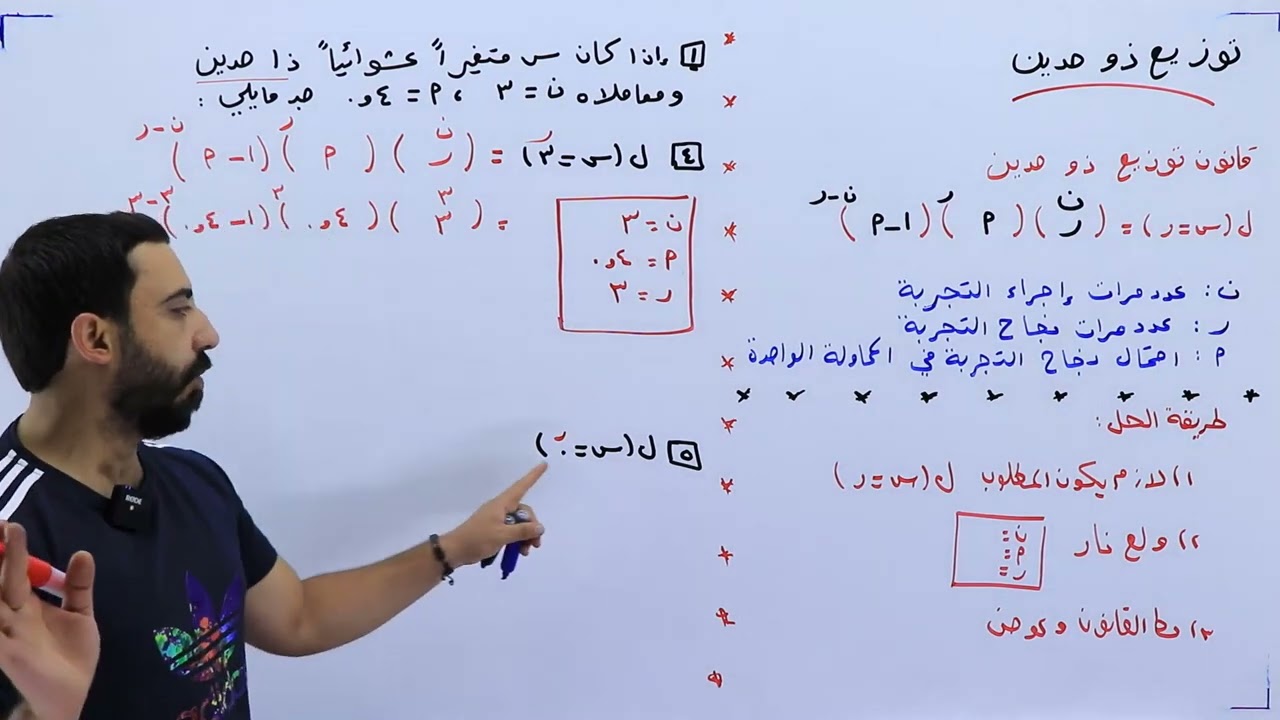 توزيع ذو حدين
قانون توزيع ذو حدين
ل(س=ر) = (ن ر) (م)^ر (١-م)^ن-ر
ن: عدد مرات إجراء التجربة
ر: عدد مرات نجاح التجربة
م: احتمال نجاح التجربة في المحاولة الواحدة
طريقة الحل:
١) لازم يكون المطلوب ل(س=ر)
٢) ولع نار
ن=
م=
ر=
٣) حط القانون وعوض
١ إذا كان س متغيراً عشوائياً ذا حدين
ومعاملاه ن=٣ ، م=٤و٠ جد مايلي:
٤ ل(س=٣) = (ن ر) (م)^ر (١-م)^ن-ر
= (٣ ٣) (٤و٠)^٣ (١-٤و٠)^٣-٣
ن=٣
م=٤و٠
ر=٣
٥ ل(س=٠)
ر
RODE